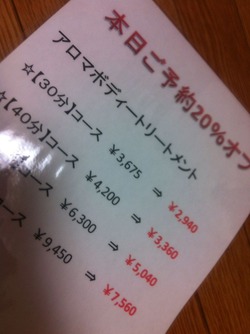 本日ご予約20%オフ
アロマボディートリートメント
☆【30分】コース ￥3,675 ⇒ ￥2,940
☆【40分】コース ￥4,200 ⇒ ￥3,360
コース ￥6,300 ⇒ ￥5,040
コース ￥9,450 ⇒ ￥7,560